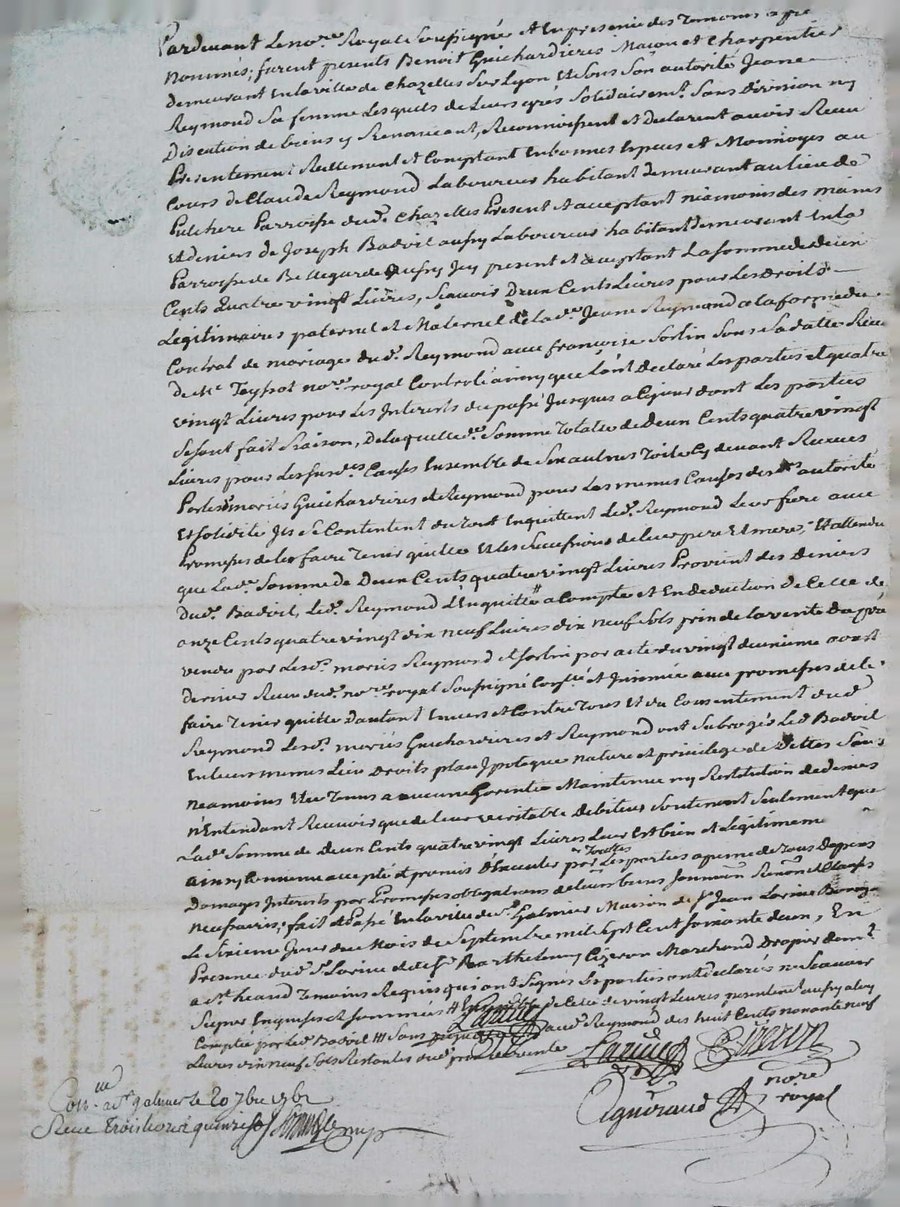 Pardevant Le no.re Royal Soussigné et En presence des Temoins apre
nommés, furent presents Benoit Guichardieres Maçon et Charpentier
demeurant En la ville de Chazelles Sur Lyon Et Sous Son autorité Jeane
Reymond Sa femme Lesquels de Leurs grés Solidairem.t Sans division ny
Discution de biens y Renoncant, Reconnoissent et Declarent avoir Receu
Presentement Reellement et Comptant En bonnes Especes et Monnoyes au
Cours de Claude Reymond Laboureur habitant demeurant au lieu de
Pulchere Parroisse dud. Chazelles Present et acceptant neamoins des mains
Et deniers de Joseph Badoil aussy Laboureur habitant demeurant En la
Parroisse de Bellegarde aussy Icy present et acceptant La somme de deux
Cents Quatre vingt Livres, Scavoir Deux Cents Livres pour Les Droits
Legitimaires paternel et Maternel de lad.e Jeane Reymond a la forme du
Contrat de mariage dud. Reymond avec françoise Sorlin Sous Sa datte Receu
de M.e Teyssot no.re royal Controllé ainsy que L'ont declaré Les parties et quatre
vingt Livres pour Les Interets du passé Jusques a Cejour dont Les parties
Se sont fait Raison, De laquelle d.e Somme Totale de deux Cents quatre vingt
Livres pour Les susd.es Causes Ensemble de Six autres Toile Cy devant Receues
Par lesd. mariés Guichardieres et Reymond pour Les memes Causes des autorité
Et solidité Jls Se Contentent du tout Enquittent Led. Reymond Leur frere avec
Promesse de les faire Tenir quitte Et les Successions de leur pere Et mere, Et attendu
que Lad.e Somme de Deux Cents quatre vingt Livres Provient des deniers
Dud. Badoil, Led. Reymond L'Enquitte a Compte et En deduction de Celle de
onze Cents quatre vingt dix neuf Livres dix neuf sols prix de la vente du pré
vendu par Lesd. mariés Reymond et Sorlin par acte du vingt deuxieme aoust
dernier Receu dud. no.re royal Soussigné et avec promesse de le
faire Tenir quitte D'autant Envers et Contre Tous Et du Consentement dud.
Reymond Lesd. mariés Guichardieres et Reymond ont Subrogés Led. Badoil
En leurs memes Lieu Droits place Ipoteque nature et privilege de Dettes Sans
neamoins Etre Tenus a aucune Garentie Maintenue ny Restitution de deniers
n'Entendant Recevoir que de leur veritable debiteur Soutenant Seulement que
Lad.e Somme de Deux Cents quatre vingt Livres Leur Est bien et Legitimeme
ainsy Convenu accepté et promis d'Executer par Touttes Les parties a peine de tous Depens
Domages Interets par Promesses obligations de leurs biens Renon. et Clauses
necessaires; fait et Passé En la ville de S.t Galmier Maison de S.r Jean Lavine
Le Sixieme Jour du Mois de Septembre mil sept Cent soixante deux, En
Presence dud. S.r Lavine et de S.r Barthelemy Cizeron Marchand Drapier dem.t
a S.t heand Temoins Requis qui ont Signés Les parties ont declarés ne Scavoir
Signer Enquises et Sommées de Celle de vingt Livres presentem.t aussy a Son
Compte par led. Badoil aud. Reymond des huit Cents nonante neuf
Livres dix neuf Sols Restantes du prix de La vente
Lavine Cizeron
Con.lé a S.t galmier le 20 7bre 1762
Receu Trois livres quinze sols
Agniraud no.re royal